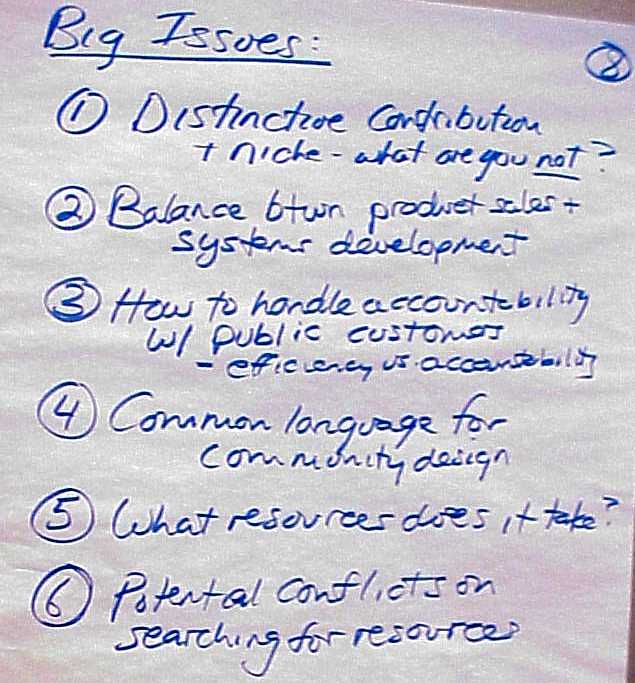 Big Issues:
⑧
① Distinctive Contribution
+ niche - what are you not?
② Balance btwn product sales +
systems development
③ How to handle accountability
w/ public customers
- efficiency vs. accountability
④ Common language for
community design
⑤ What resources does it take?
⑥ Potential conflicts on
searching for resources